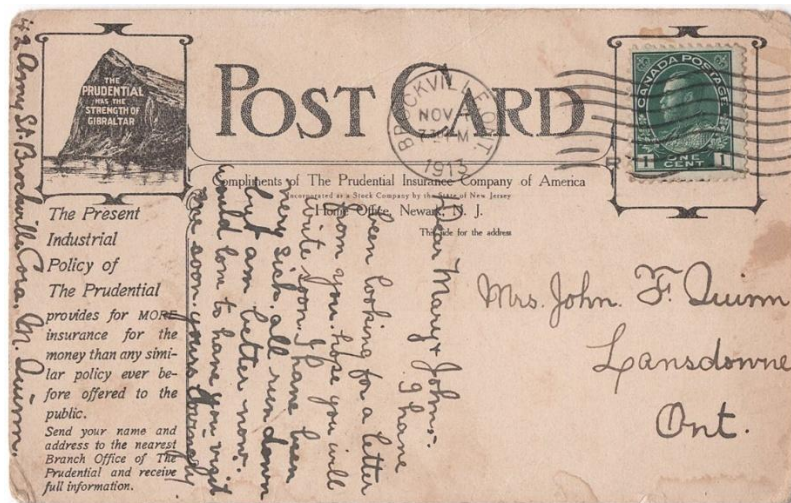 THE
PRUDENTIAL
HAS THE
STRENGTH OF
GIBRALTAR
POST CARD
BROCKVILLE ONT
NOV
PM
1913
CANADA POSTAGE
1 ONE CENT 1
Compliments of The Prudential Insurance Company of America
Incorporated as a Stock Company by the State of New Jersey
Home Office, Newark, N. J.
This side for the address
The Present
Industrial
Policy of
The Prudential
provides for MORE
insurance for the
money than any simi-
lar policy ever be-
fore offered to the
public.
Send your name and
address to the nearest
Branch Office of The
Prudential and receive
full information.
Dear Mary & John:-
I have
been looking for a letter
from you. hope you will
write soon. I have been
very sick. all run down
but am better now.
would love to have you visit
me soon. yours
42 St. Brockville Cora. M. Quinn.
Mrs. John. F. Quinn
Lansdowne
Ont.